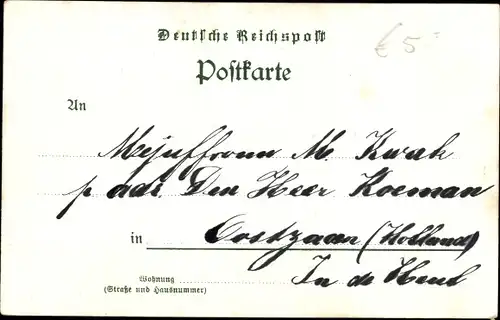 Deutsche Reichspost
€ 5
Postkarte
An
Mejuffrouw M. Kwak
p. adr. Den Heer Koeman
in Oostzaan (Holland)
Wohnung In de
(Straße und Hausnummer)